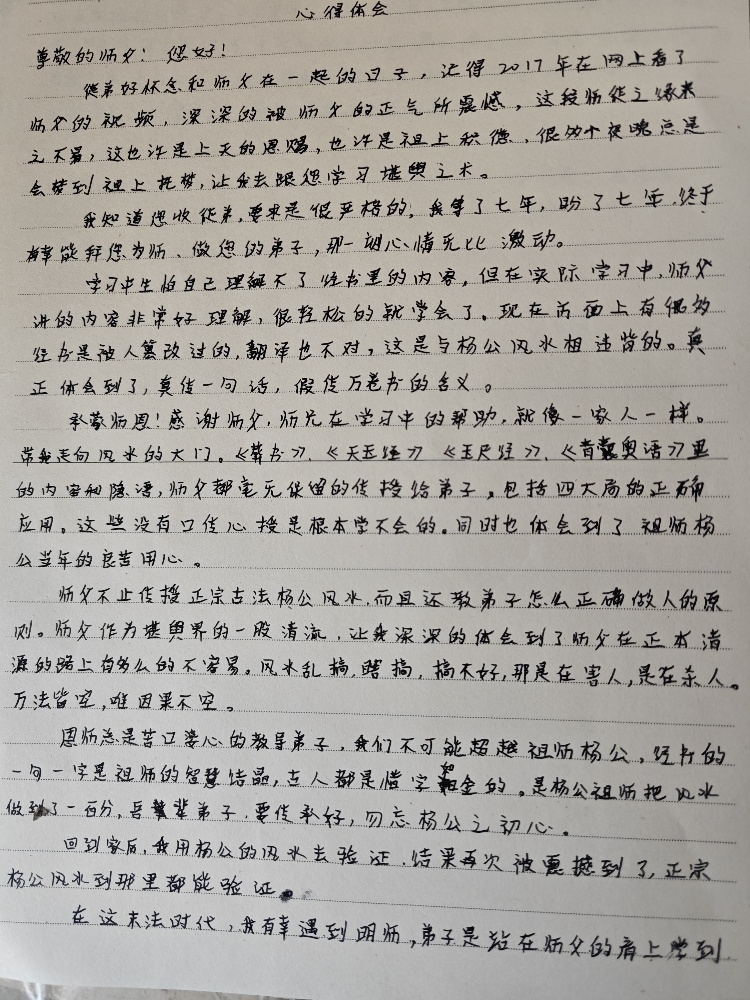 心得体会
尊敬的师父：您好！
徒弟好怀念和师父在一起的日子，记得2017年在网上看了
师父的视频，深深的被师父的正气所震撼，这段师徒之缘来
之不易，这也许是上天的恩赐，也许是祖上积德，很多个夜晚总是
会梦到祖上托梦，让我去跟您学习堪舆之术。
我知道您收徒弟，要求是很严格的，我等了七年，盼了七年，终于
有幸能拜您为师、做您的弟子，那一刻心情无比激动。
学习中生怕自己理解不了经书里的内容，但在实际学习中，师父
讲的内容非常好理解，很轻松的就学会了。现在市面上有很多
经书是被人篡改过的，翻译也不对，这是与杨公风水相违背的。真
正体会到了，真传一句话，假传万卷书的含义。
承蒙师恩！感谢师父，师兄在学习中的帮助，就像一家人一样。
带我走向风水的大门。《葬书》、《天玉经》《玉尺经》、《青囊奥语》里
的内容和隐语，师父都毫无保留的传授给弟子。包括四大局的正确
应用。这些没有口传心授是根本学不会的。同时也体会到了祖师杨
公当年的良苦用心。
师父不止传授正宗古法杨公风水，而且还教弟子怎么正确做人的原
则。师父作为堪舆界的一股清流，让我深深的体会到了师父在正本清
源的路上有多么的不容易。风水乱搞，瞎搞，搞不好，那是在害人，是在杀人。
万法皆空，唯因果不空。
恩师总是苦口婆心的教导弟子，我们不可能超越祖师杨公，经书的
一句一字是祖师的智慧结晶，古人都是惜字如金的。是杨公祖师把风水
做到了一百分，吾辈弟子，要传承好，勿忘杨公之初心。
回到家后，我用杨公的风水去验证，结果再次被震撼到了，正宗
杨公风水到那里都能验证。
在这末法时代，我有幸遇到明师，弟子是站在师父的肩上学到